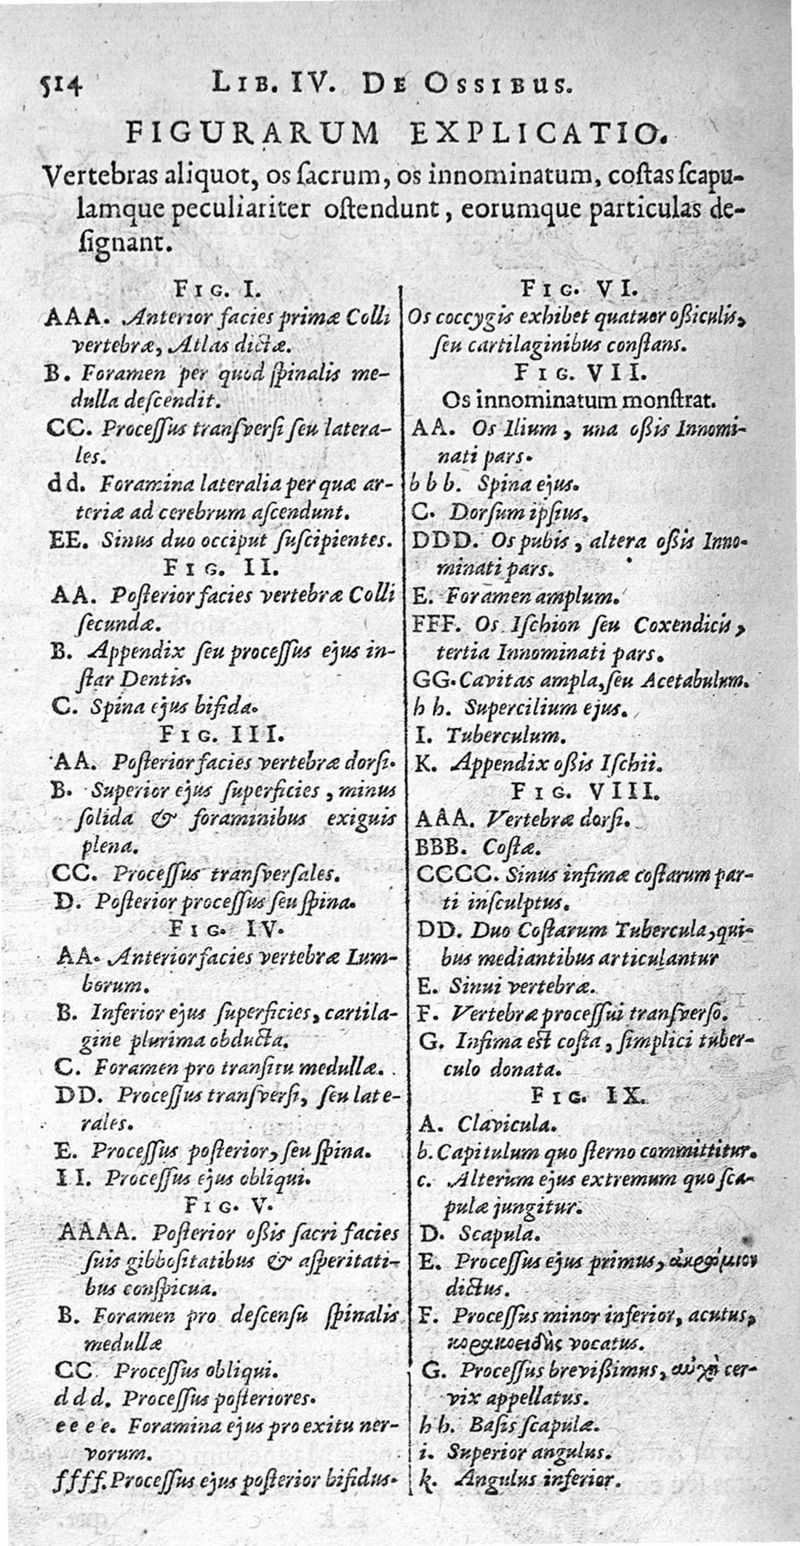 514 LIB. IV. DE OSSIBUS.
FIGURARUM EXPLICATIO.
Vertebras aliquot, os ſacrum, os innominatum, coſtas ſcapu-
lamque peculiariter oſtendunt, eorumque particulas de-
ſignant.
FIG. I.
AAA. Anterior facies primæ Colli
vertebræ, Atlas dictæ.
B. Foramen per quod ſpinalis me-
dulla deſcendit.
CC. Proceſſus tranſverſi ſeu latera-
les.
dd. Foramina lateralia per quæ ar-
teriæ ad cerebrum aſcendunt.
EE. Sinus duo occiput ſuſcipientes.
FIG. II.
AA. Poſterior facies vertebræ Colli
ſecundæ.
B. Appendix ſeu proceſſus ejus in-
ſtar Dentis.
C. Spina ejus bifida.
FIG. III.
AA. Poſterior facies vertebræ dorſi.
B. Superior ejus ſuperficies, minus
ſolida & foraminibus exiguis
plena.
CC. Proceſſus tranſverſales.
D. Poſterior proceſſus ſeu ſpina.
FIG. IV.
AA. Anterior facies vertebræ Lum-
borum.
B. Inferior ejus ſuperficies, cartila-
gine plurima obducta.
C. Foramen pro tranſitu medullæ.
DD. Proceſſus tranſverſi, ſeu late-
rales.
E. Proceſſus poſterior, ſeu ſpina.
II. Proceſſus ejus obliqui.
FIG. V.
AAAA. Poſterior oſſis ſacri facies
ſuis gibboſitatibus & aſperitati-
bus conſpicua.
B. Foramen pro deſcenſu ſpinalis
medullæ
CC. Proceſſus obliqui.
ddd. Proceſſus poſteriores.
eeee. Foramina ejus pro exitu ner-
vorum.
ffff. Proceſſus ejus poſterior bifidus.
FIG. VI.
Os coccygis exhibet quatuor oſſiculis,
ſeu cartilaginibus conſtans.
FIG. VII.
Os innominatum monſtrat.
AA. Os Ilium, una oſſis Innomi-
nati pars.
bbb. Spina ejus.
C. Dorſum ipſius.
DDD. Os pubis, altera oſſis Inno-
minati pars.
E. Foramen amplum.
FFF. Os Iſchion ſeu Coxendicis,
tertia Innominati pars.
GG. Cavitas ampla, ſeu Acetabulum.
hh. Supercilium ejus.
I. Tuberculum.
K. Appendix oſſis Iſchii.
FIG. VIII.
AAA. Vertebræ dorſi.
BBB. Coſtæ.
CCCC. Sinus infimæ coſtarum par-
ti inſculptus.
DD. Duo Coſtarum Tubercula, qui-
bus mediantibus articulantur
E. Sinui vertebræ.
F. Vertebræ proceſſui tranſverſo.
G. Infima eſt coſta, ſimplici tuber-
culo donata.
FIG. IX.
A. Clavicula.
b. Capitulum quo ſterno committitur.
c. Alterum ejus extremum quo ſca-
pulæ jungitur.
D. Scapula.
E. Proceſſus ejus primus, ἀκρώμιον
dictus.
F. Proceſſus minor inferior, acutus,
κορακοειδὴς vocatus.
G. Proceſſus breviſſimus, αὐχὴν cer-
vix appellatus.
hh. Baſis ſcapulæ.
i. Superior angulus.
k. Angulus inferior.